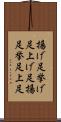 揚げ足挙げ
足上げ足揚
足挙足上足